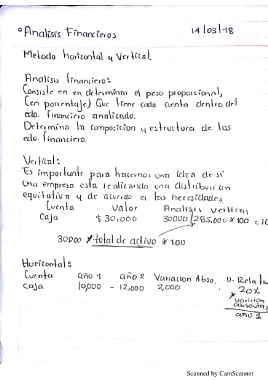 °Analisis Financieros 14/03/18
Metodo horizontal y Vertical.
Analisis financiero:
Consiste en en determinar el peso proporcional,
(en porcentaje) Que tiene cada cuenta dentro del
edo. financiero analizado.
Determina la composicion y estructura de las
edo. financiero.
Vertical:
Es importante para hacernos una idea de si
Una empresa esta realizando una distribucion
equitativa y de acuerdo a las necesidades
Cuenta Valor Analisis vertical
Caja $30,000 30000/285,000 * 100 = 10
30000 * total de activo * 100
Horizontal:
Cuenta año 1 año 2 Variacion Abso. V. Relata
Caja 10,000 - 12,000 2,000 20%
* Variacion
absoluta
año 1
Scanned by CamScanner